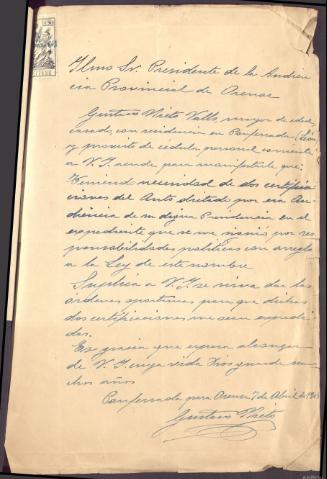 Ilmo Sr. Presidente de la Audien
cia Provincial de Orense
Gustavo Nieto Valls, mayor de edad,
casado, con residencia en Ponferrada (León)
y provisto de cédula personal corriente
a V.I. acude para manifestarle que:
Teniendo necesidad de dos certifica
ciones del Auto dictado por esa Au
diencia de su digna Presidencia en el
expediente que se me siguió por res
ponsabilidades políticas con arreglo
a la Ley de este nombre
Suplica a V.I. se sirva dar las
órdenes oportunas para que dichas
dos certificaciones me sean expedi
das.
Es gracia que espera alcanzar
de V.I. cuya vida Dios guarde mu
chos años
Ponferrada para Orense 7 de Abril de
Gustavo Nieto